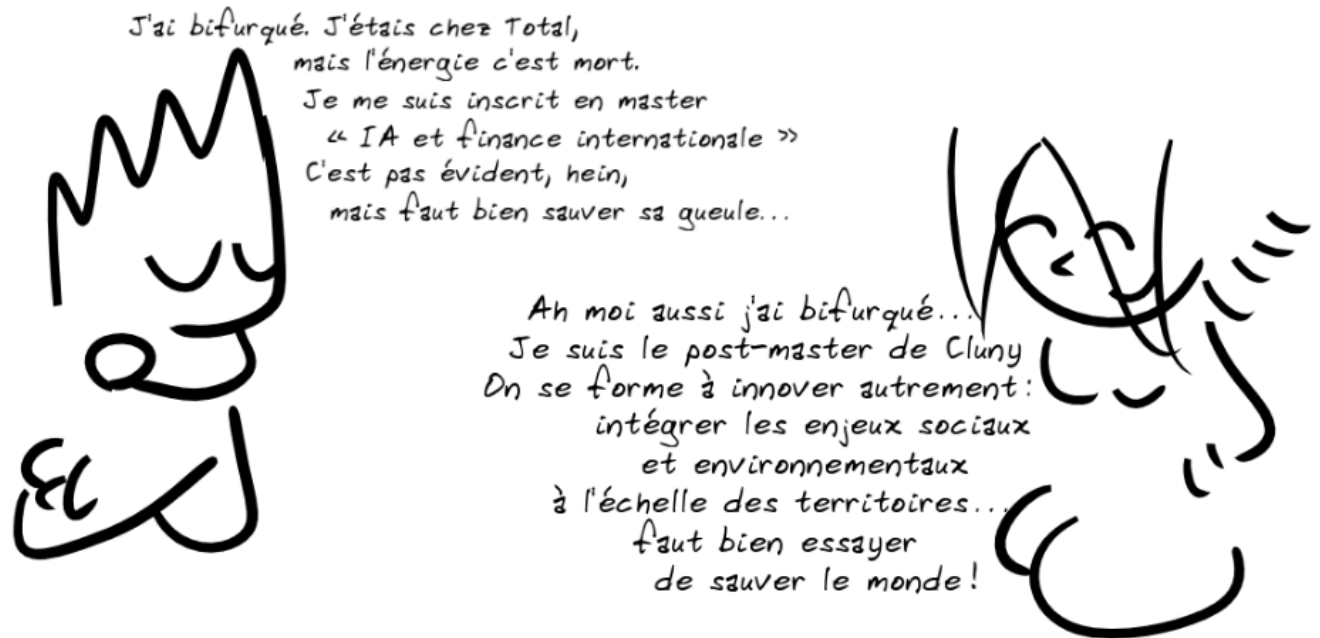 J'ai bifurqué. J'étais chez Total,
mais l'énergie c'est mort.
Je me suis inscrit en master
« IA et finance internationale »
C'est pas évident, hein,
mais faut bien sauver sa gueule...
Ah moi aussi j'ai bifurqué...
Je suis le post-master de Cluny
On se forme à innover autrement :
intégrer les enjeux sociaux
et environnementaux
à l'échelle des territoires...
faut bien essayer
de sauver le monde !